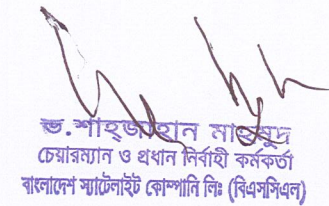 ড.শাহ্জাহান মাহমুদ
চেয়ারম্যান ও প্রধান নির্বাহী কর্মকর্তা
বাংলাদেশ স্যাটেলাইট কোম্পানি লিঃ (বিএসসিএল)